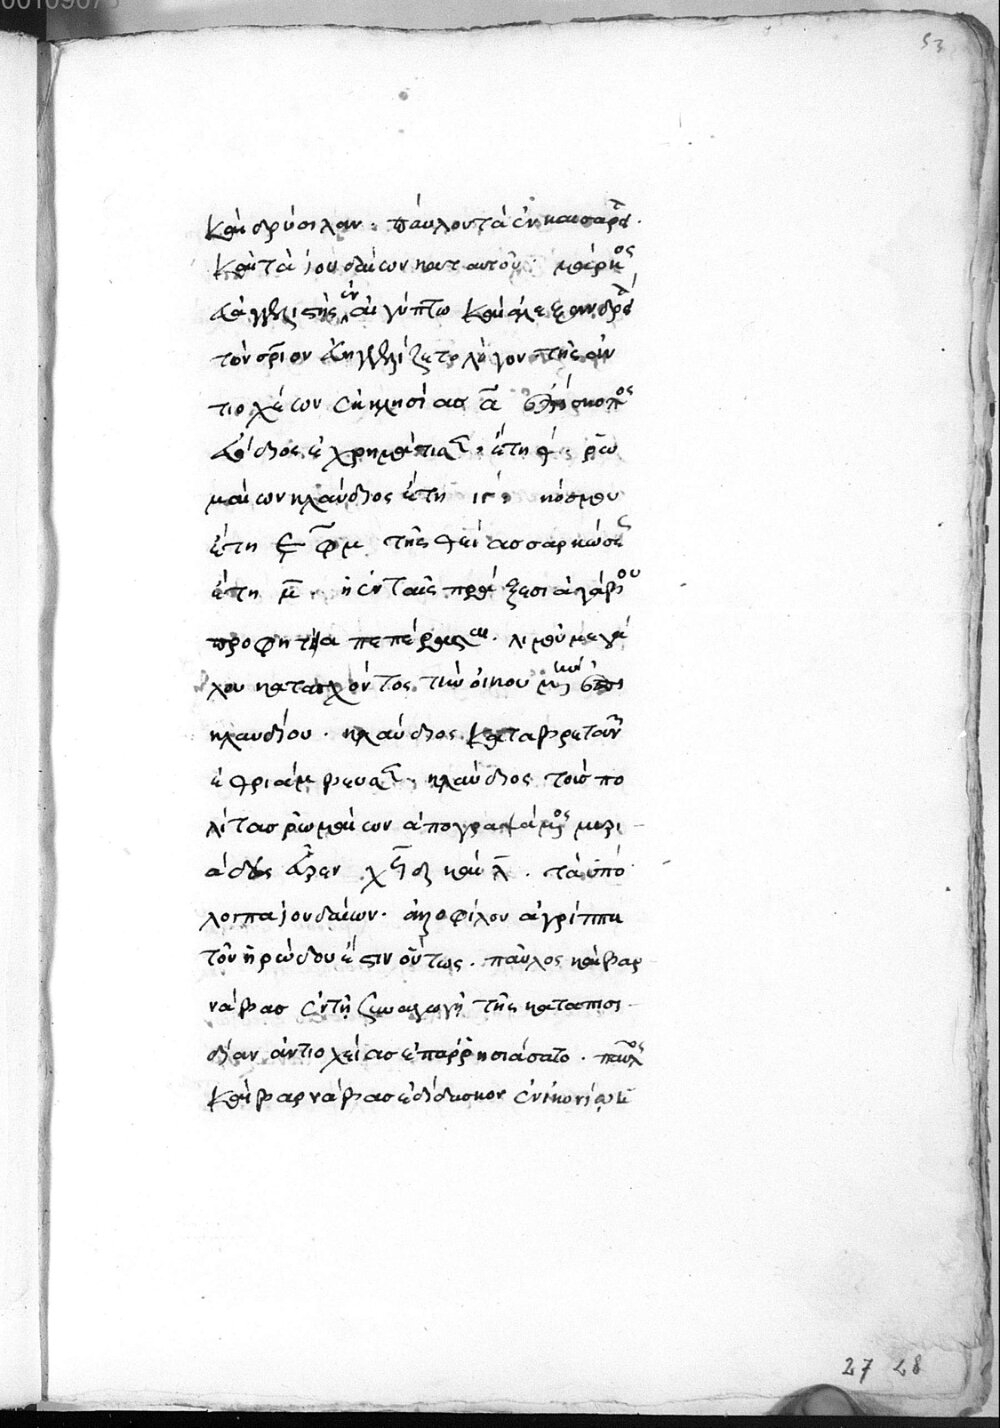 53
καὶ δρύσιλαν· παύλου τὰ ἐν καισαρεί
καὶ τὰ ἰουδαίων κατ αυτοῦ· μάρκος
εὐαγγελιστὴς ἐν αἰγύπτω καὶ ἀλεξανδρεί
τὸν σριον εὐηγγελίζετο λόγον τῆς ἀν
τιοχέων ἐκκλησίας α ἐπίσκοπος
εὐόδιος ἐχρημάτισε· ἔτη ῥω
μαίων κλαύδιος ἔτη ιγ· κόσμου
ἔτη εφμ τῆς θείας σαρκώσε
ἔτη μ· ἡ ἐν ταῖς πράξεσι ἀγάβου
προφητεία πεπέρασται· λιμοῦ μεγά
λου κατασχόντος τὴν οἰκουμένην ἐπι
κλαυδίου· κλαύδιος κατα βρεταν
ἐθριάμβευσε· κλαύδιος τοὺς πο
λίτας ῥωμαίων ἀπογραψάμενος μυρι
άδας εὗρεν καὶ λ· τὰ ὑπό
λοιπα ἰουδαίων· ἀπο φίλου ἀγρίππα
τοῦ ἡρώδου ἔστιν οὕτως· παῦλος καὶ βαρ
νάβας ἐν τῇ συναγωγῇ τῆς κατα πισι
δίαν ἀντιοχείας ἐπαρρησιάσατο· παῦλος
καὶ βαρνάβας ἐδίδασκον ἐν ἰκονίω
27 28